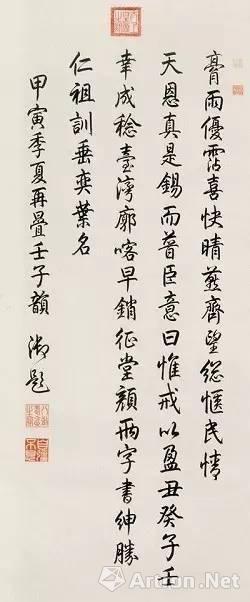 膏雨優霑喜快晴齊望總愜民情
天恩真是錫而普臣意曰惟戒以盈丑癸子壬
幸成稔臺灣廓喀早銷征堂顏兩字書紳勝
仁祖訓垂奕葉名
甲寅季夏再疊壬子韻 御題
Artron.Net